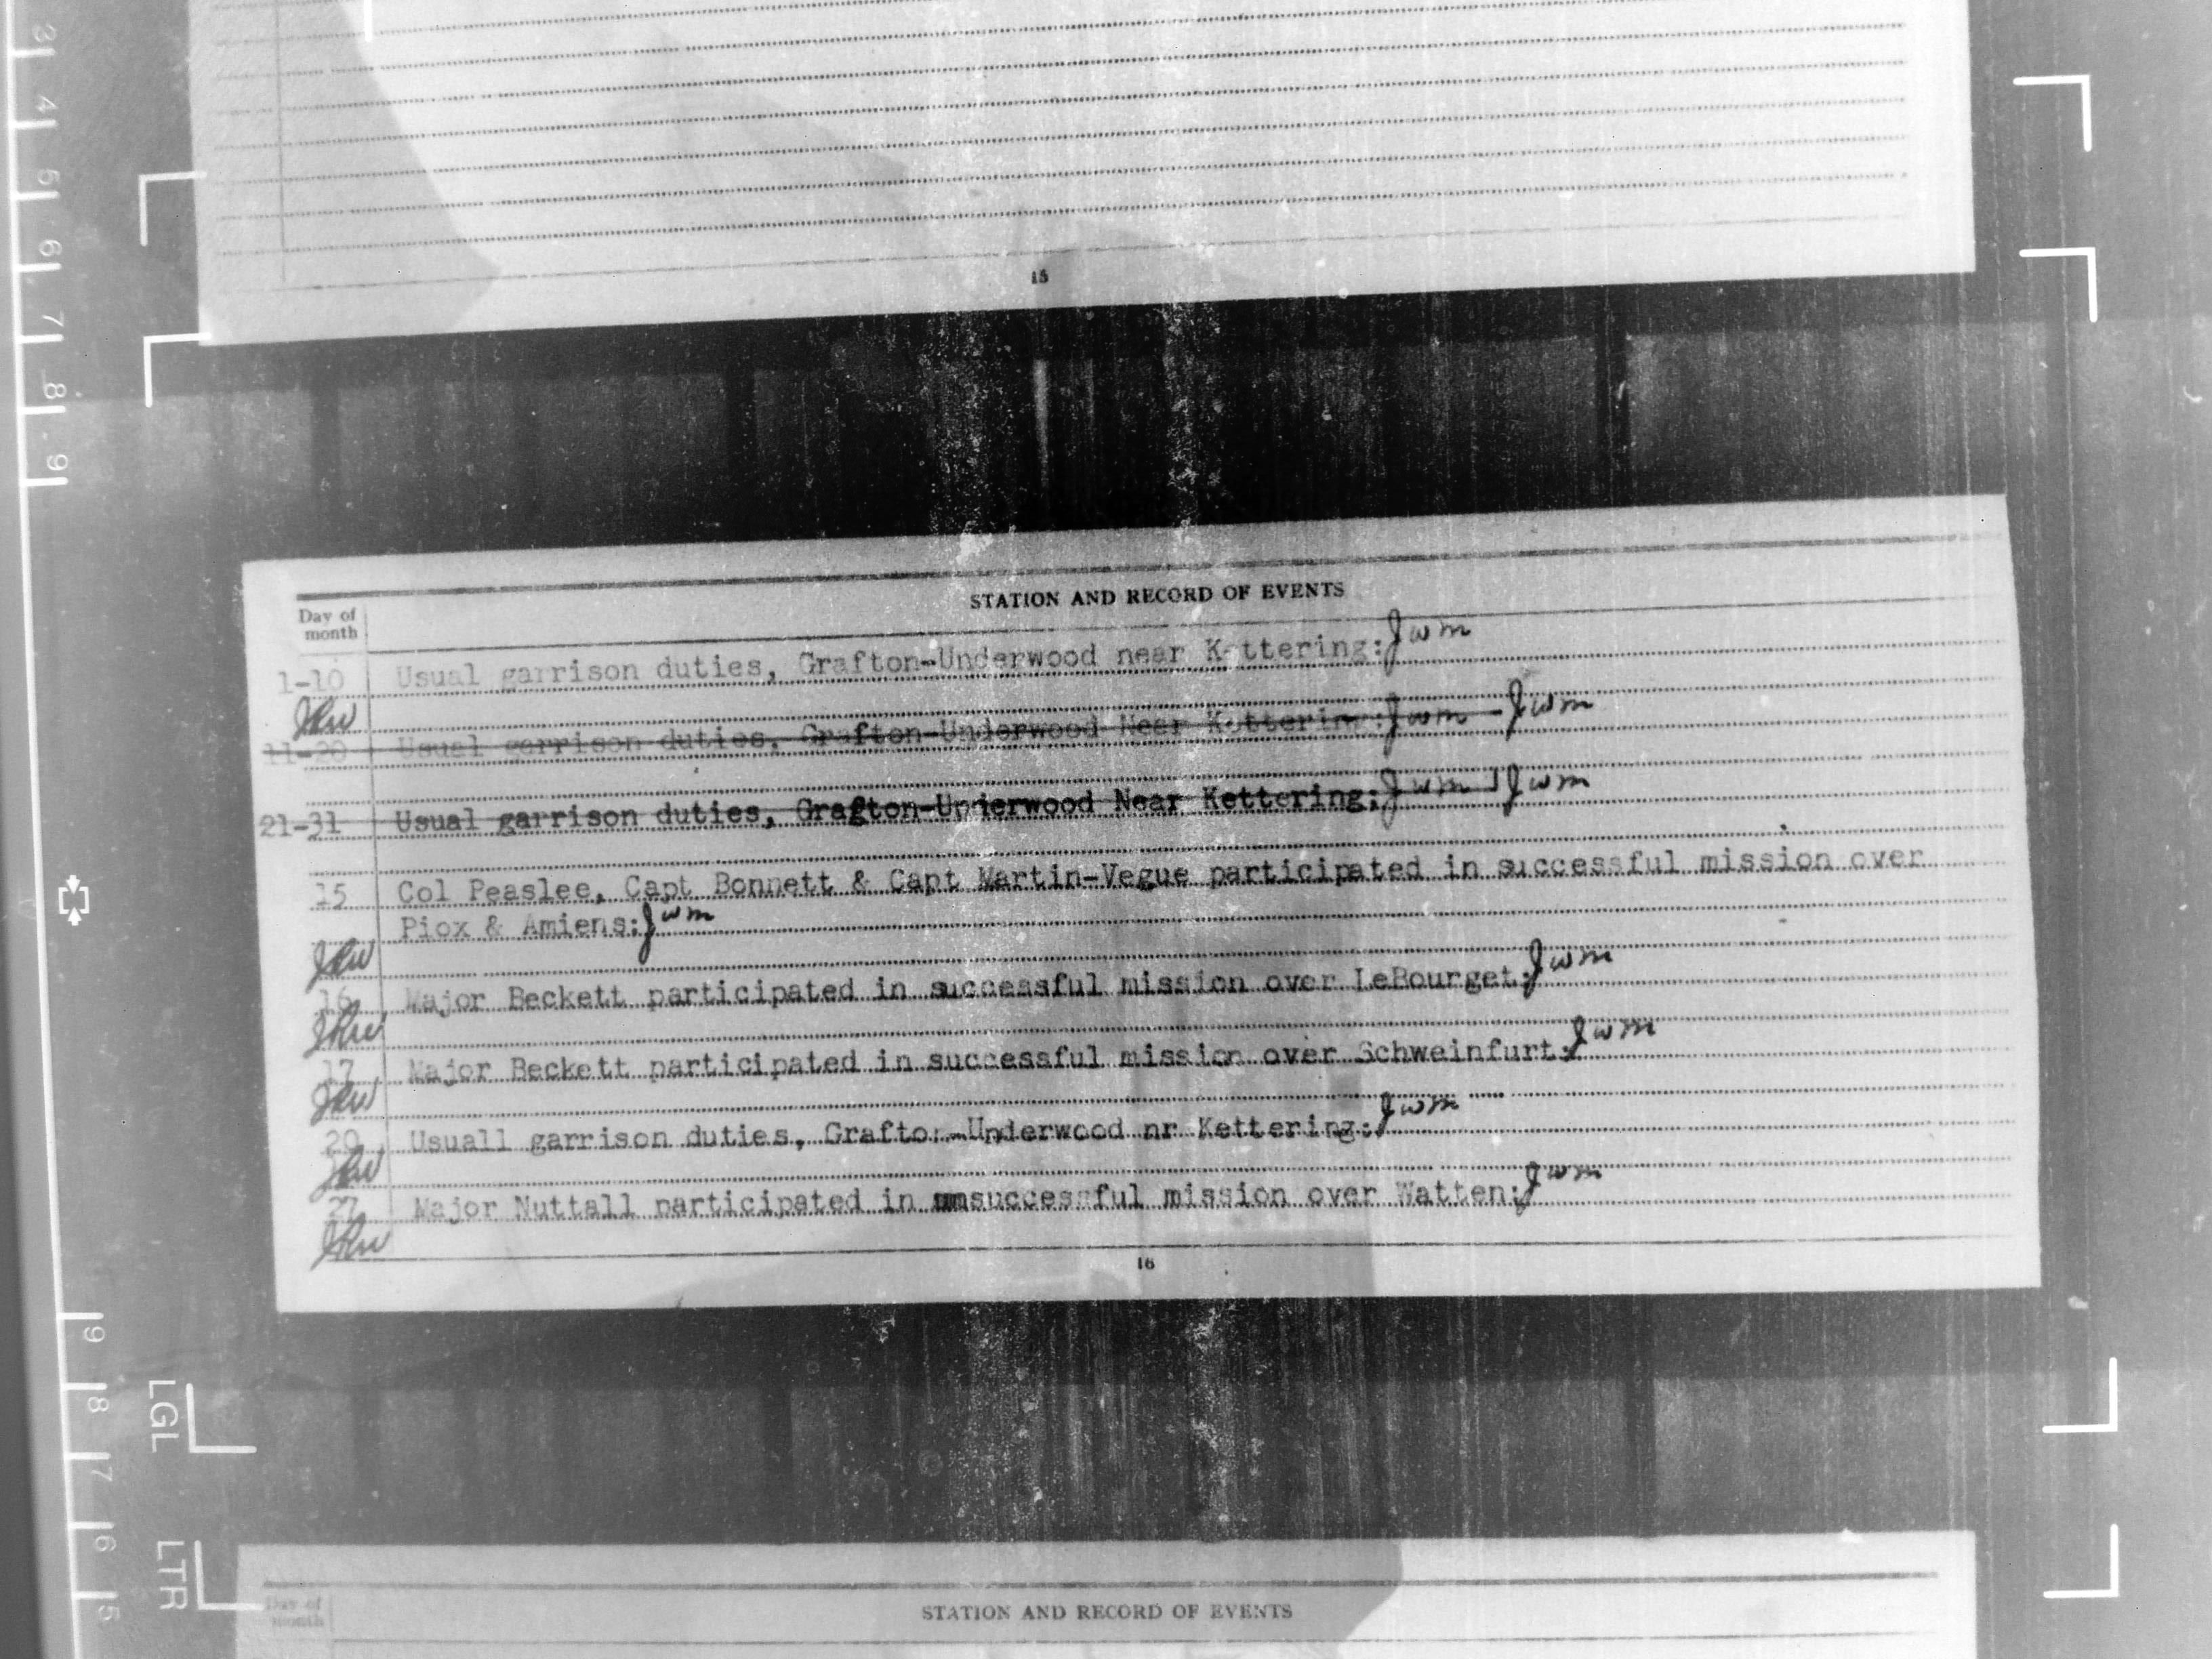 3
4
5
6
7
8
9
15
STATION AND RECORD OF EVENTS
Day of
month
1-10 Usual garrison duties, Grafton-Underwood near Kettering: Jwm
JRW
11-20 Usual garrison duties, Grafton-Underwood Near Kettering: Jwm Jwm
21-31 Usual garrison duties, Gragton-Underwood Near Kettering: Jwm Jwm
15 Col Peaslee, Capt Bonnett & Capt Martin-Vegue participated in successful mission over
Piox & Amiens: Jwm
JRW
16 Major Beckett participated in successful mission over LeBourget: Jwm
JRW
17 Major Beckett participated in successful mission over Schweinfurt: Jwm
JRW
20 Usuall garrison duties, Grafton-Underwood nr Kettering: Jwm
JRW
27 Major Nuttall participated in unsuccessful mission over Watten: Jwm
JRW
16
9
8
7
6
5
LGL
LTR
Day of
month
STATION AND RECORD OF EVENTS